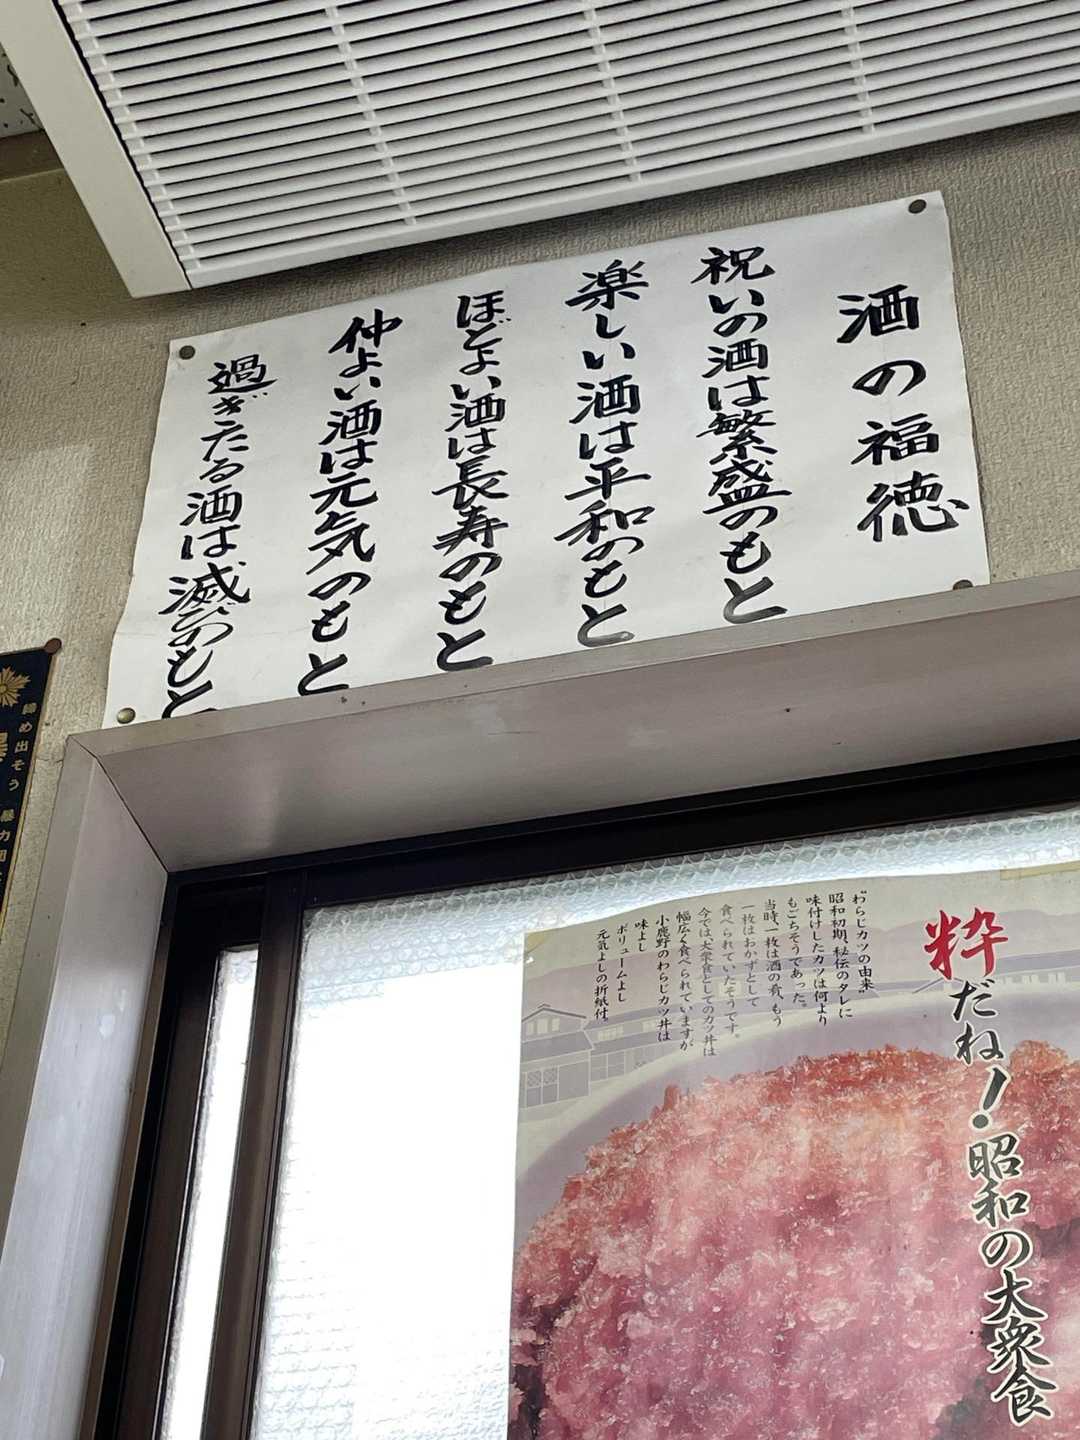 酒の福徳
祝いの酒は繁盛のもと
楽しい酒は平和のもと
ほどよい酒は長寿のもと
仲よい酒は元気のもと
過ぎたる酒は滅びのもと
締め出そう 暴力団
粋だね！昭和の大衆食
"わらじカツの由来"
昭和初期、秘伝のタレに
味付けしたカツは何より
もごちそうであった。
当時、一枚は酒の肴、もう
一枚はおかずとして
食べられていたそうです。
今では大衆食としてのカツ丼は
幅広く食べられていますが
小鹿野のわらじカツ丼は
味よし
ボリュームよし
元気よしの折紙付。